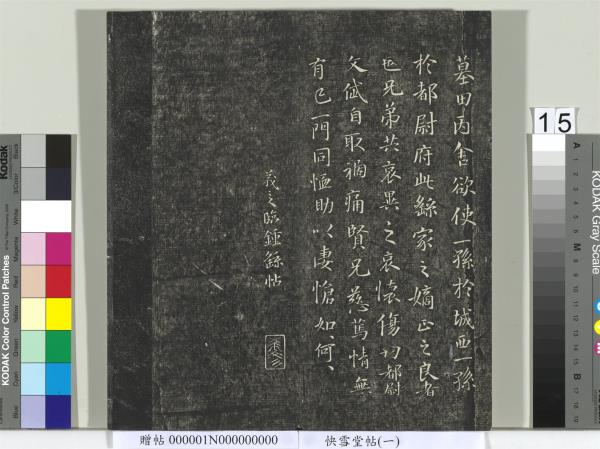 墓田丙舍欲使一孫於城西一孫
於都尉府此繇家之嫡正之良者
也兄弟共哀異之哀懷傷切都尉
文岱自取禍痛賢兄慈篤情無
有已一門同恤助以悽愴如何如何
羲之臨鍾繇帖
15
贈帖 000001N000000000
快雪堂帖(一)
KODAK Color Control Patches
Kodak
Blue
Cyan
Green
Yellow
Red
Magenta
White
3/Color
Black
KODAK Gray Scale
A
1
2
3
4
5
6
M
8
9
10
11
12
13
14
15
B
17
18
19